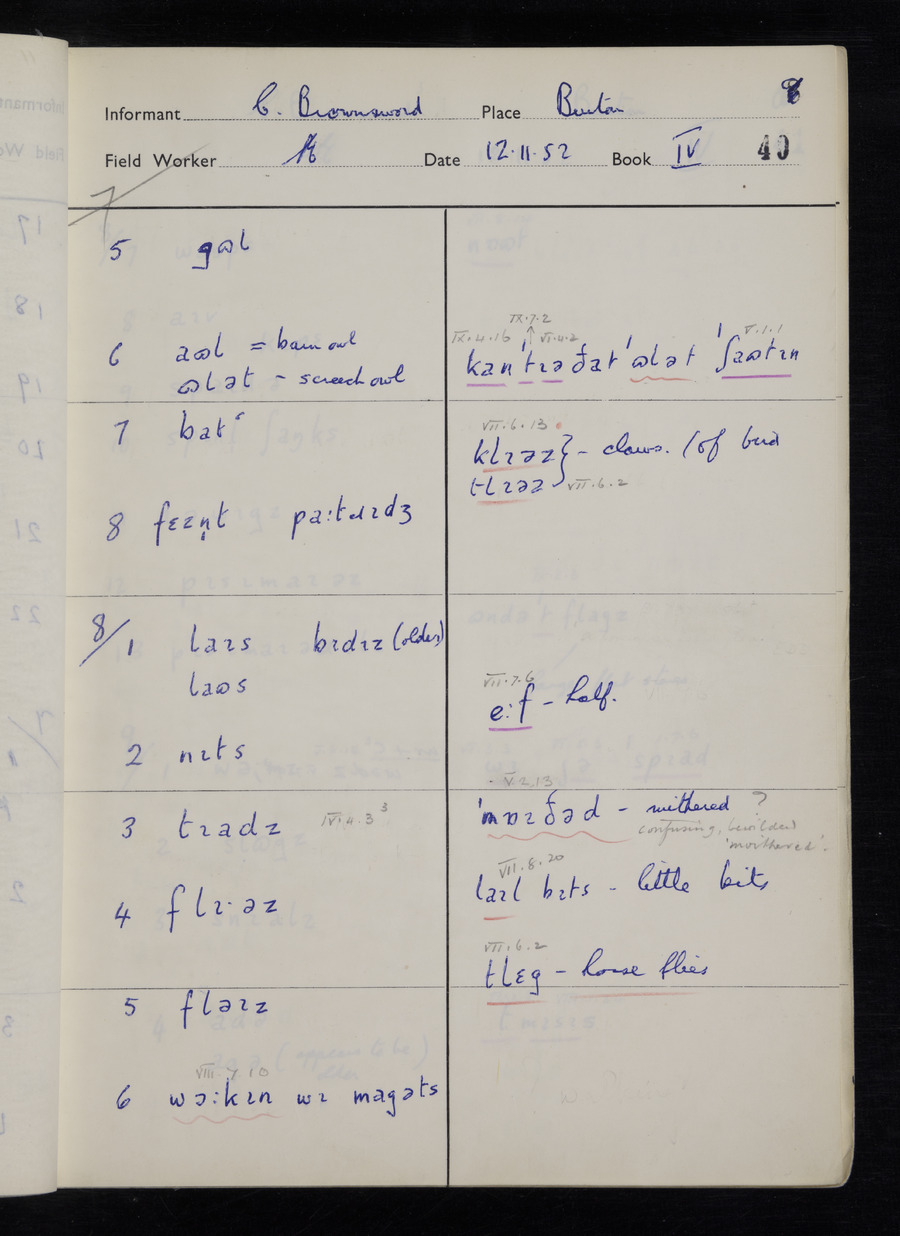 Informant C. Brownsword Place Buxton 8
Field Worker Date 12.11.52 Book IV 40
7/
5 gɷl
6 aɷl = barn owl
ɷlət – screech owl
7 batʿ
8 fɛɪn̩t pa:tɹɪdʒ
8/1 laɪs bɪdɪz (older)
laɷs
2 nɪts
3 tɪadz IV.4.3 3
4 flɪ·əz
5 fləɪz
VIII.7.10
6 wɔ:kɪn wɪ magəts
IX.7.2
IX.4.16 ↑ VI.4.2 V.1.1
kan ˈtɪəðat ˈɷlət ˈʃaɷtɪn
VII.6.13
klɪəz } – claws. (of bird
tlɪəz VII.6.2
VII.7.6
e:f – half.
V.2.13
ˈmɒɪðəd – mithered ?
confusing, bewildered
'moithered'.
VII.8.20
laɪl bɪts – little bits
VII.6.2
tlɛg – horse flies